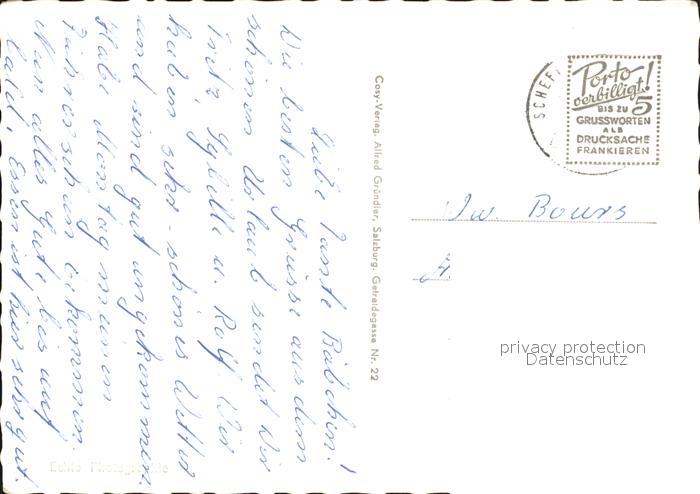 Liebe Tante Bäbchen!
Die besten Grüsse aus dem
schönen Urlaub sendet Dir
Fritz Sybille u. Rolf Wir
haben sehr-schönes Wetter
und sind gut angekommen.
Habe Montag meinen
schon bekommen.
Nun alles Gute bis auf
bald. Essen ist hier sehr gut.
Cosy-Verlag, Alfred Gründler, Salzburg, Getreidegasse Nr. 22
Echte Photographie
SCHEF
Porto
verbilligt!
BIS ZU 5
GRUSSWORTEN
ALS
DRUCKSACHE
FRANKIEREN
Bours
privacy protection
Datenschutz